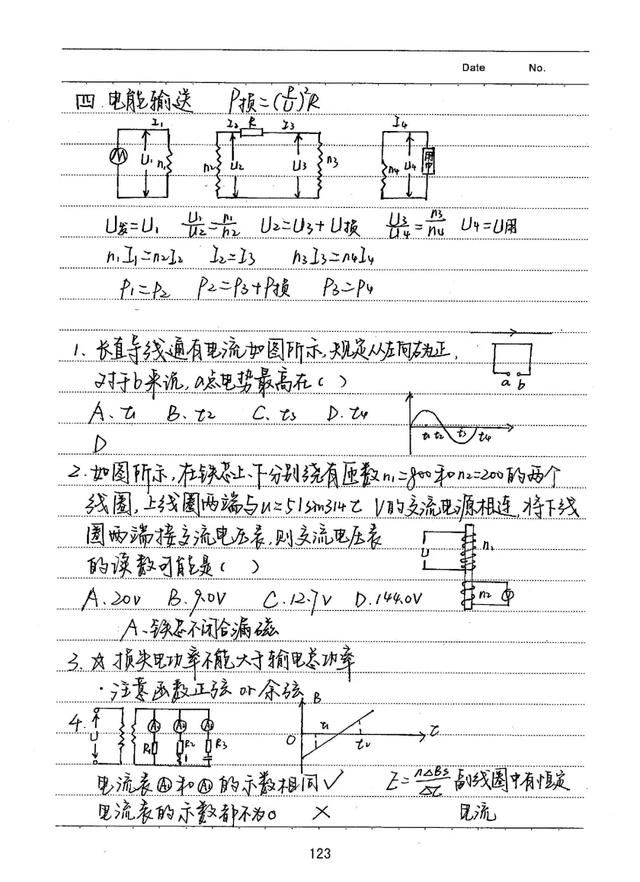 Date No.
四.电能输送 P损=(P/U)²R
I1 I2 R I3 I4
U1 n1 n2 U2 U3 n3 n4 U4 用电
U发=U1 U1/U2=n1/n2 U2=U3+U损 U3/U4=n3/n4 U4=U用
n1I1=n2I2 I2=I3 n3I3=n4I4
P1=P2 P2=P3+P损 P3=P4
1、长直导线通有电流如图所示,规定从左向右为正,
对于b来说,a点电势最高在( )
a b
A、t1 B、t2 C、t3 D、t4
t1 t2 t3 t4
D
2、如图所示,在铁芯上、下分别绕有匝数n1=800和n2=200的两个
线圈,上线圈两端与u=51sin314t V的交流电源相连,将下线
圈两端接交流电压表,则交流电压表
的读数可能是( )
U n1
n2 V
A.2.0V B.9.0V C.12.7V D.144.0V
A、铁芯不闭合漏磁
3、损失电功率不能大于输电总功率
·注意函数正弦or余弦
4. U A1 A2 A3 R1 R2 R3
B t1 O t2 t
电流表A1和A2的示数相同✓ E=nΔBS/Δt 副线圈中有恒定
电流表的示数都不为0 × 电流
123